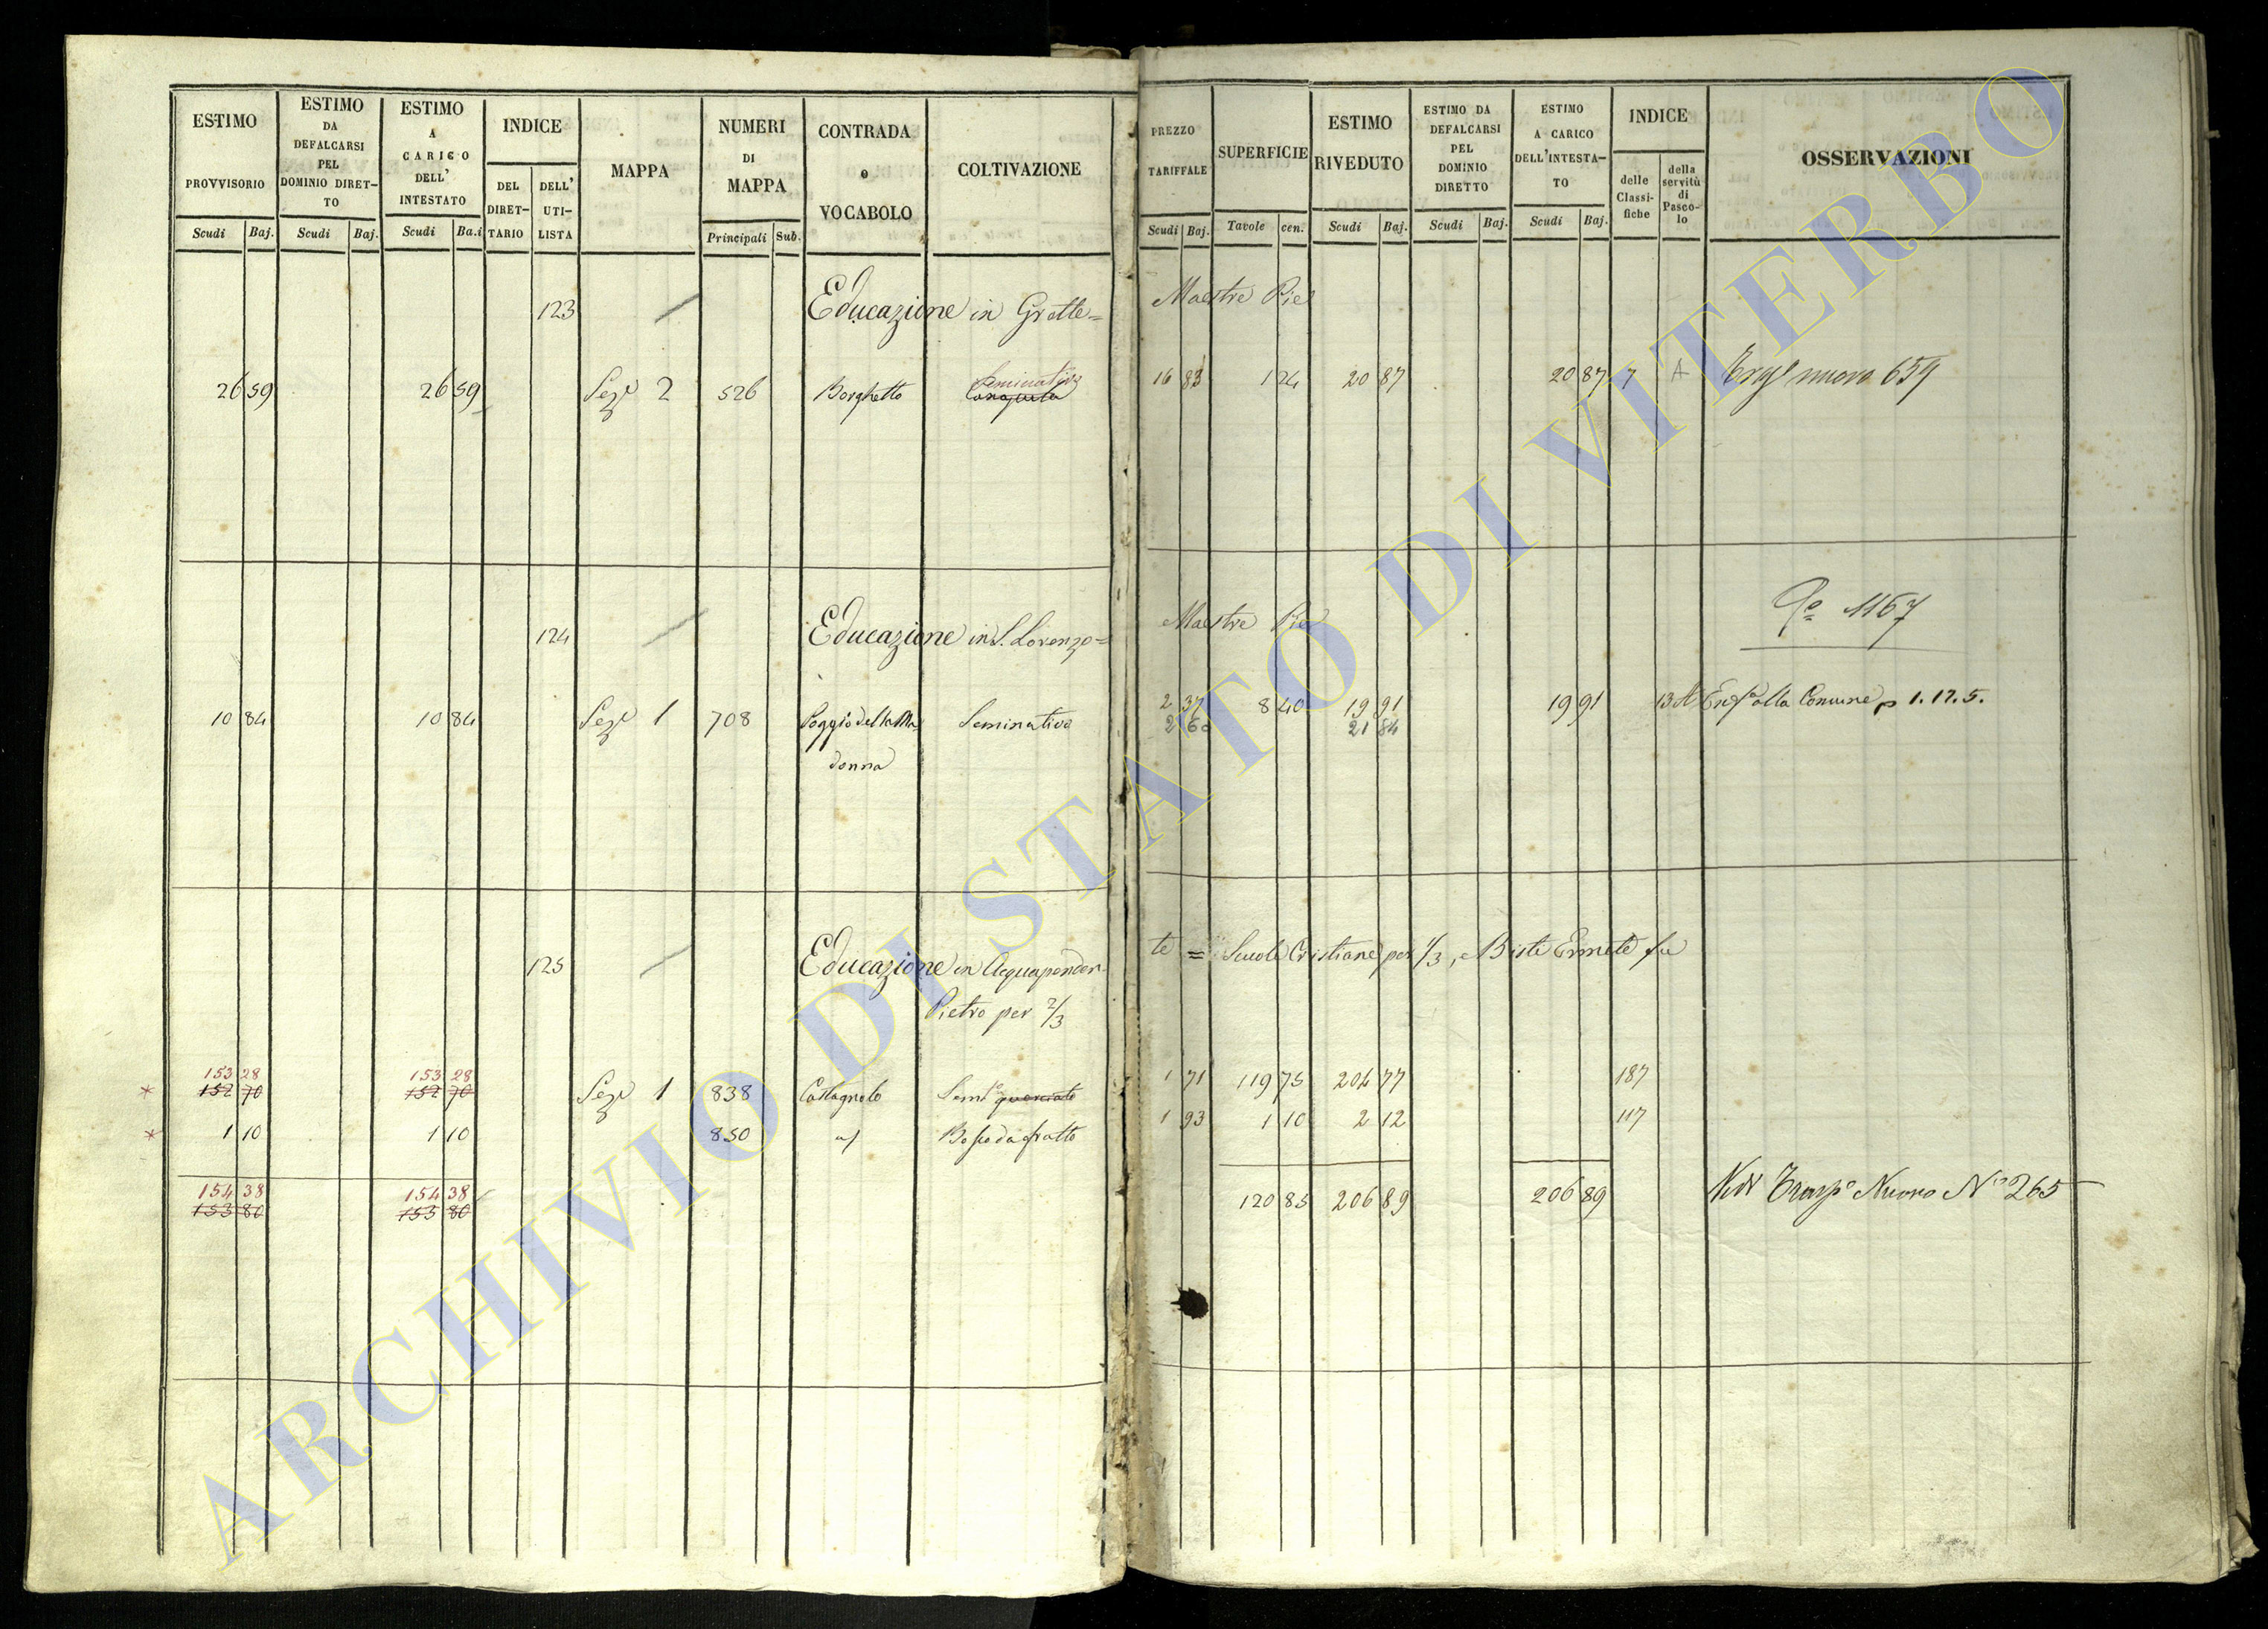 ESTIMO PROVVISORIO Scudi Baj.
ESTIMO DA DEFALCARSI PEL DOMINIO DIRETTO Scudi Baj.
ESTIMO A CARICO DELL' INTESTATO Scudi Ba.i
INDICE DEL DIRETTARIO DELL' UTILISTA
MAPPA
NUMERI DI MAPPA Principali Sub.
CONTRADA o VOCABOLO
COLTIVAZIONE
PREZZO TARIFFALE Scudi Baj.
SUPERFICIE Tavole cen.
ESTIMO RIVEDUTO Scudi Baj.
ESTIMO DA DEFALCARSI PEL DOMINIO DIRETTO Scudi Baj.
ESTIMO A CARICO DELL'INTESTATO Scudi Baj.
INDICE delle Classifiche della servitù di Pascolo
OSSERVAZIONI
123 Educazione in Grotte= Maestre Pie
Seminativo
26 59 26 59 Seze 2 526 Borghetto 16 83 1 24 20 87 20 87 7 A nuovo 659
1167
124 Educazione in S. Lorenzo= Maestre Pie
10 84 10 84 Seze 1 708 Poggio della Ma- Seminativo 2 37 8 40 19 91 19 91 13 A alla Comune p 1.17.5.
2 60 21 84
donna
125 Educazione in Acquapenden- te = Scuole Cristiane per 1/3, e Biste Ermete fu
Pietro per 2/3
153 28 153 28
* 152 70 152 70 Seze 1 838 Castagnolo Semo querciato 1 71 119 75 204 77 187
* 1 10 1 10 850 Bosco da frutto 1 93 1 10 2 12 117
154 38 154 38
153 80 153 80 120 85 206 89 206 89 Vedi Trasp.o Nuovo N.o 265
ARCHIVIO DI STATO DI VITERBO